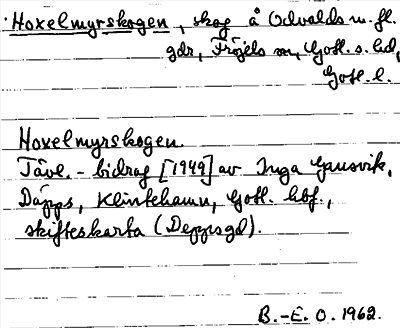 Hoxelmyrskogen, skog å Odvalds m. fl.
gdr, Fröjels sn, Gotl. s. hd,
Gotl. l.
Hoxelmyrskogen.
Tävl.-bidrag [1949] av Inga
Däpps, Klintehamn, Gotl. hbf.,
skifteskarta (Deppsgd).
B.-E. O. 1962.